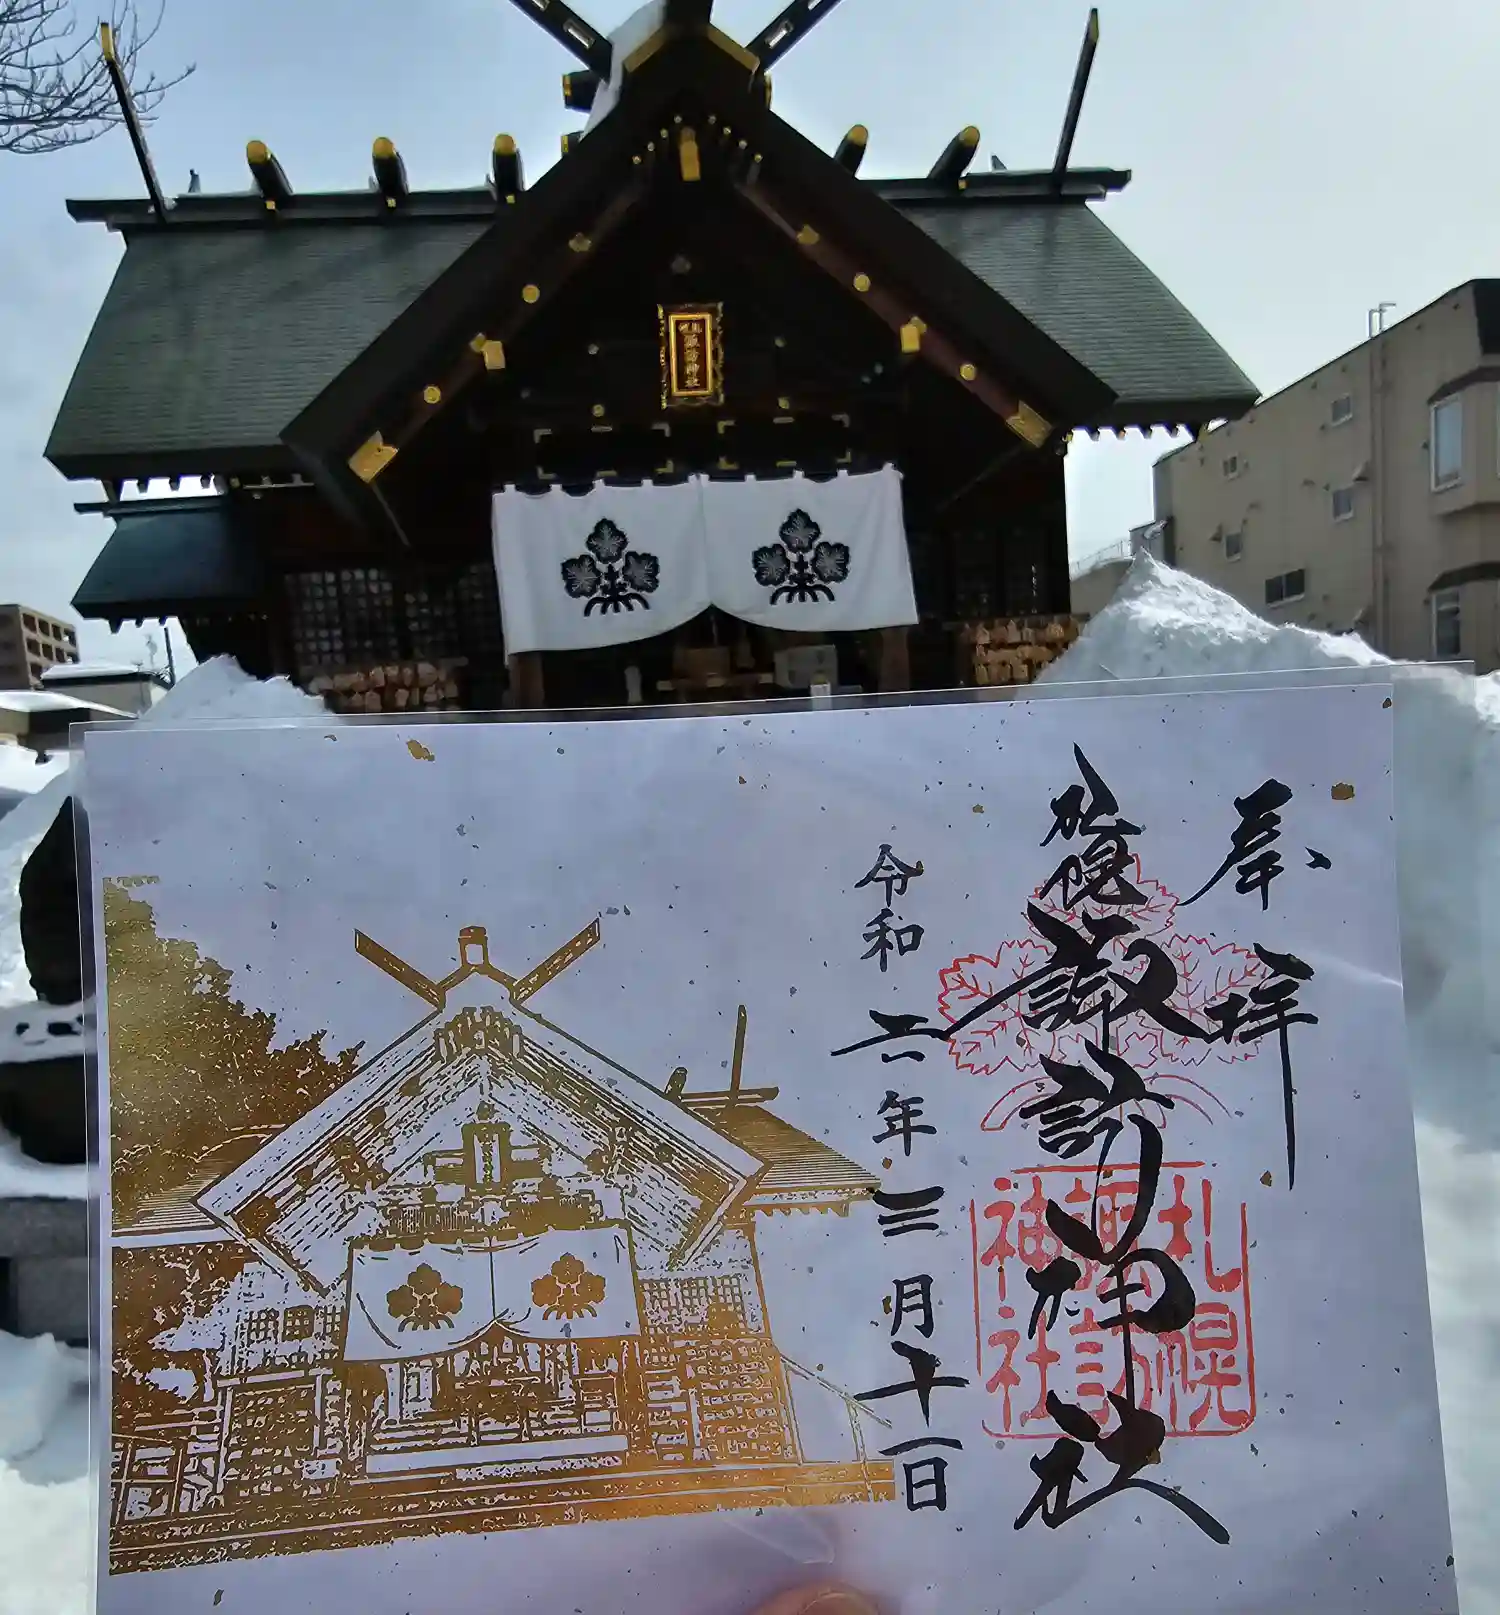 札幌
諏訪神社
奉拝
札幌諏訪神社
令和六年三月十一日
札幌
諏訪
神社